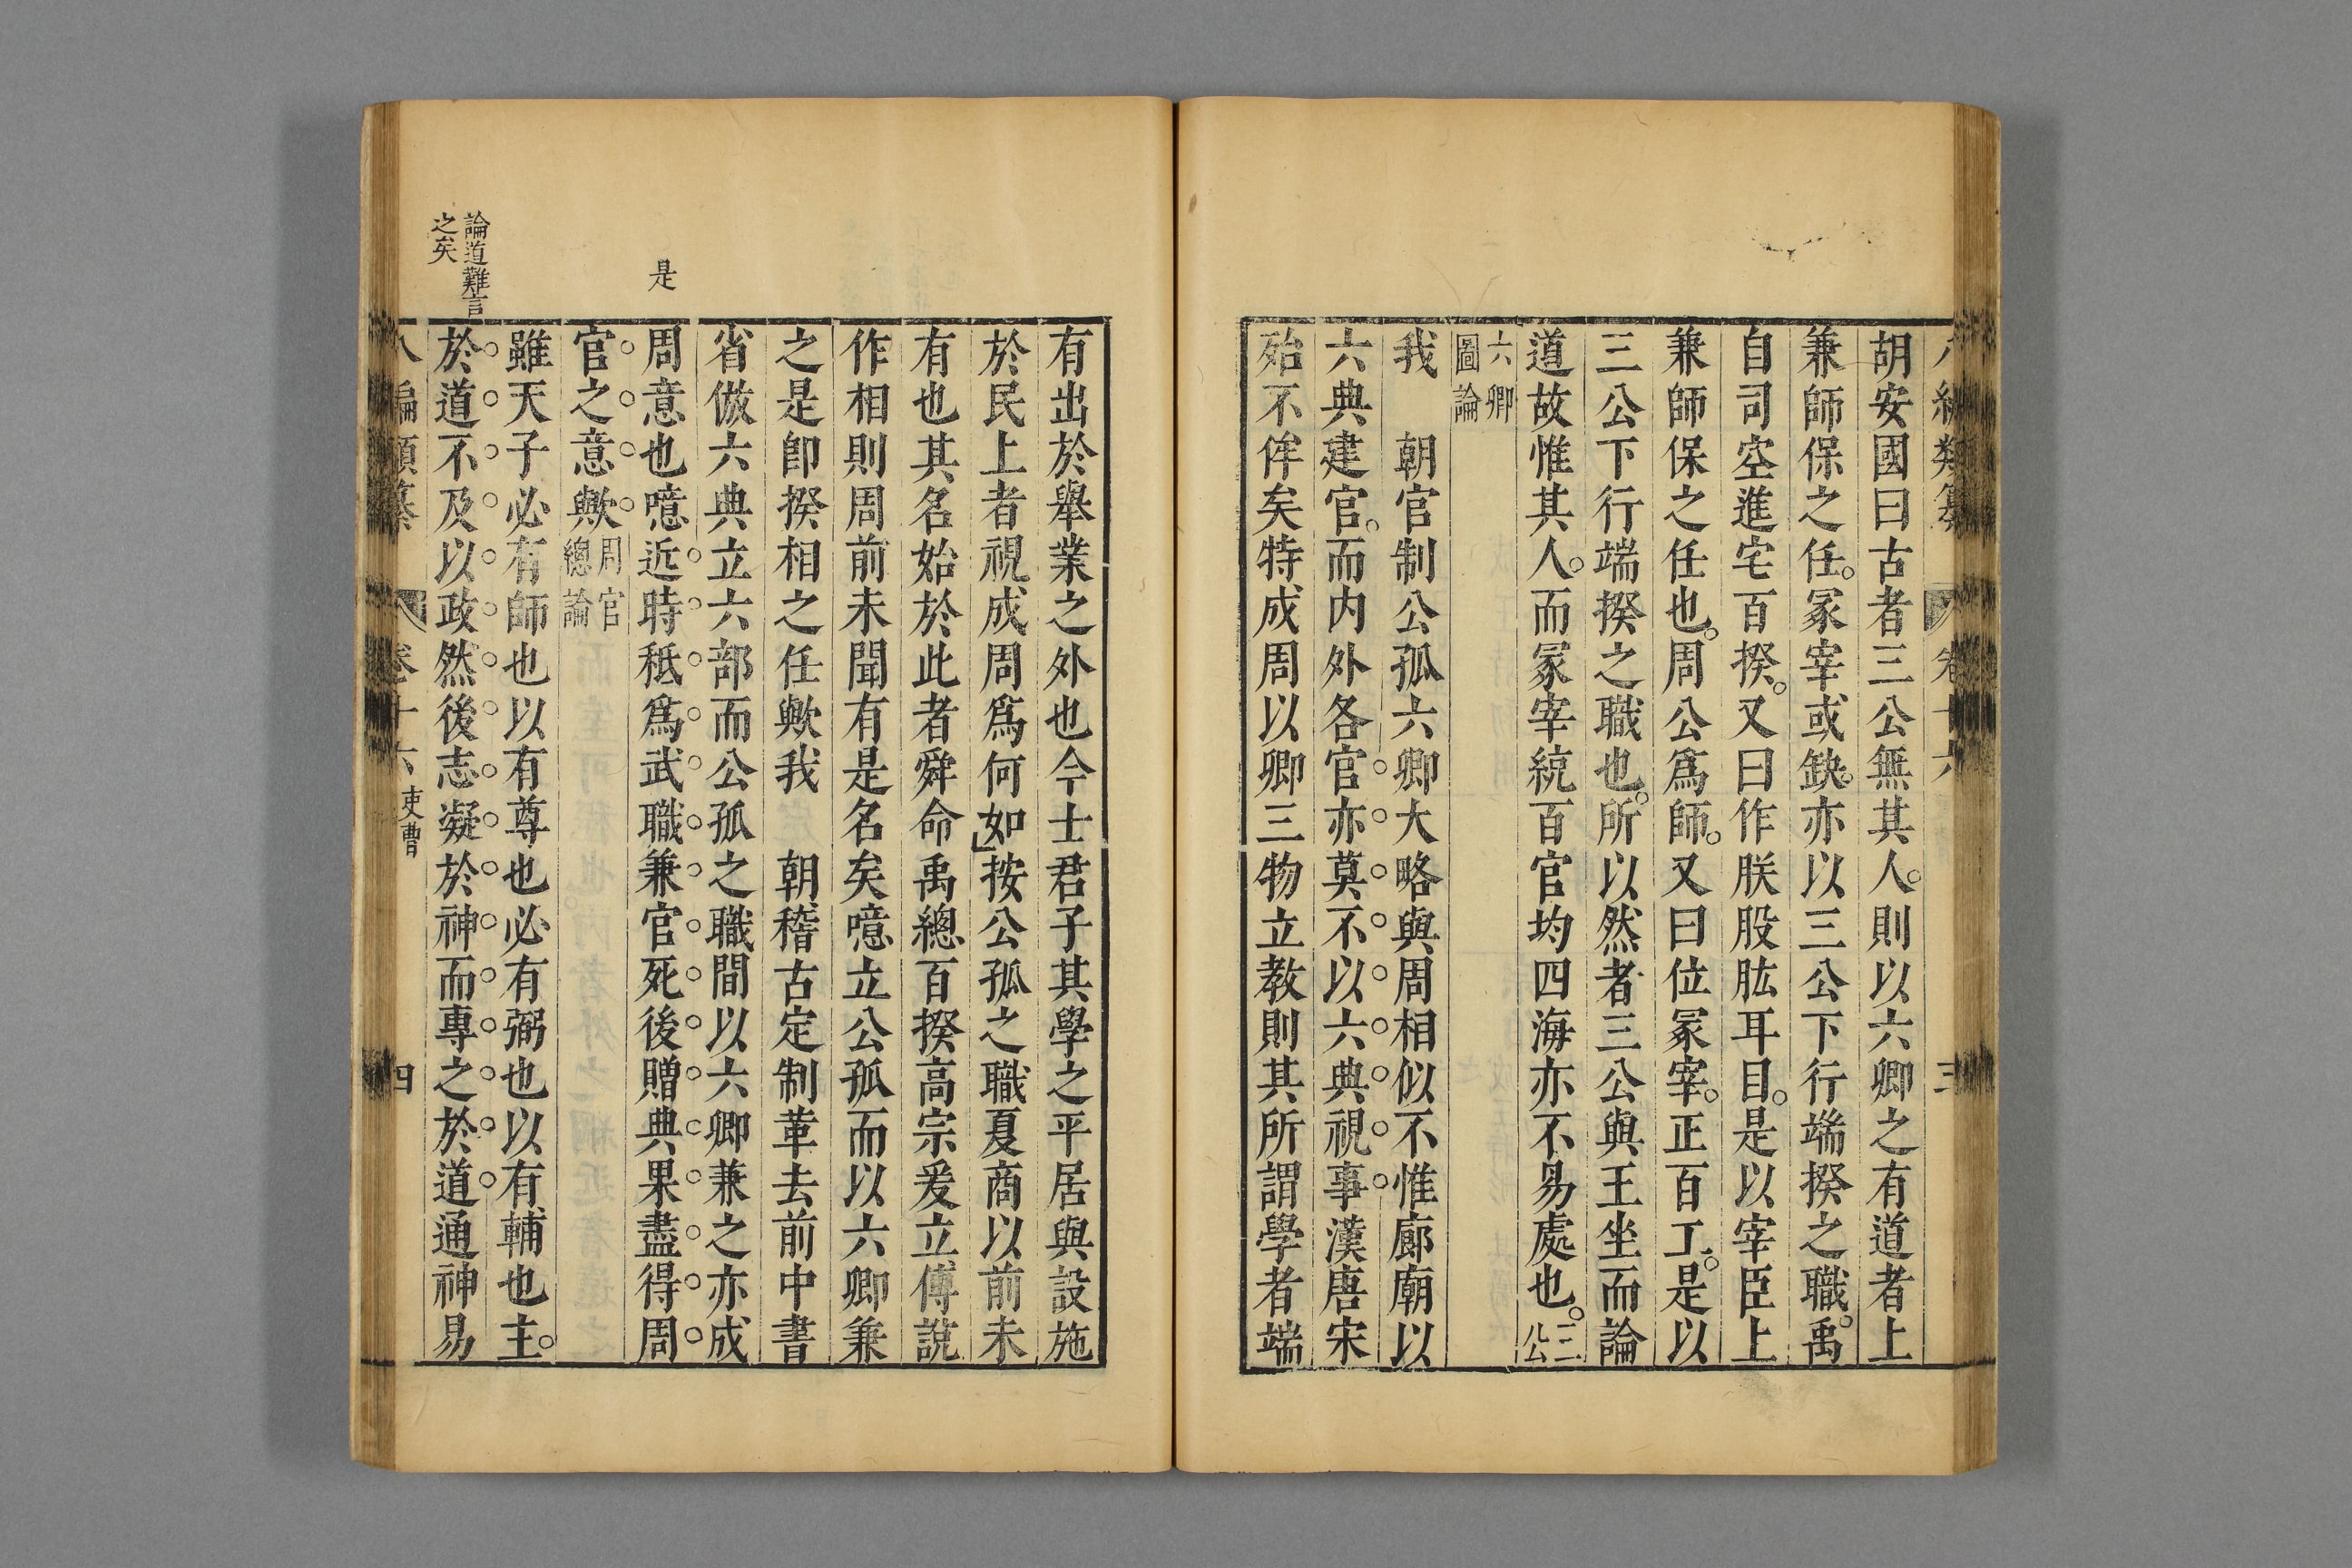 八編類纂 卷十六 三
胡安國曰古者三公無其人則以六卿之有道者上
兼師保之任冡宰或缺亦以三公下行端揆之職禹
自司空進宅百揆又曰作朕股肱耳目是以宰臣上
兼師保之任也周公爲師又曰位冡宰正百工是以
三公下行端揆之職也所以然者三公與王坐而論
道故惟其人而冡宰統百官均四海亦不易處也三公
六卿圖論
我 朝官制公孤六卿大略與周相似不惟廊廟以
六典建官而内外各官亦莫不以六典視事漢唐宋
殆不侔矣特成周以卿三物立教則其所謂學者端
有出於舉業之外也今士君子其學之平居與設施
於民上者視成周爲何如按公孤之職夏商以前未
有也其名始於此者舜命禹總百揆高宗爰立傅說
作相則周前未聞有是名矣噫立公孤而以六卿兼
之是卽揆相之任歟我 朝稽古定制革去前中書
省倣六典立六部而公孤之職間以六卿兼之亦成
是
周意也噫近時秪爲武職兼官死後贈典果盡得周
官之意歟周官總論
雖天子必有師也以有尊也必有弼也以有輔也主
論道難言之矣
於道不及以政然後志凝於神而專之於道通神易
八編類纂 卷十六 吏曹 四